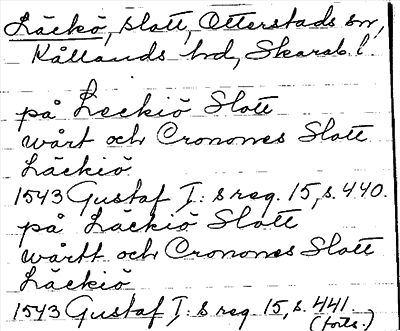 Läckö, slott, Otterstads sn,
Kållands hd, Skarab. l.
på Leckiö Slott
wårt och Cronones Slott
Läckiö
1543 Gustaf I: s reg. 15, s. 440.
på Läckiö Slott
wårtt och Cronones Slott
Läckiö
1543 Gustaf I: s reg. 15, s. 441.
(forts.)